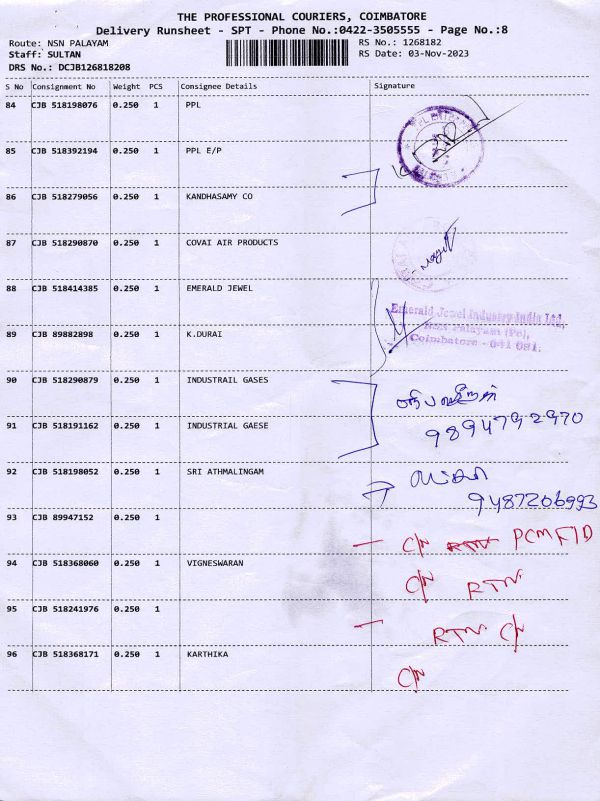 THE PROFESSIONAL COURIERS, COIMBATORE
Delivery Runsheet - SPT - Phone No.:0422-3505555 - Page No.:8
Route: NSN PALAYAM RS No.: 1268182
Staff: SULTAN RS Date: 03-Nov-2023
DRS No.: DCJB126818208
S No Consignment No Weight PCS Consignee Details Signature
84 CJB 518198076 0.250 1 PPL
85 CJB 518392194 0.250 1 PPL E/P
86 CJB 518279056 0.250 1 KANDHASAMY CO
87 CJB 518290870 0.250 1 COVAI AIR PRODUCTS
88 CJB 518414385 0.250 1 EMERALD JEWEL
Emerald Jewel Industry India Ltd.
89 CJB 89882898 0.250 1 K.DURAI
Coimbatore - 641 031.
90 CJB 518290879 0.250 1 INDUSTRAIL GASES
91 CJB 518191162 0.250 1 INDUSTRIAL GAESE
9894792970
92 CJB 518198052 0.250 1 SRI ATHMALINGAM
9487206993
93 CJB 89947152 0.250 1
C/N RTN PCMF/D
94 CJB 518368060 0.250 1 VIGNESWARAN
C/N RTN
95 CJB 518241976 0.250 1
RTN C/N
96 CJB 518368171 0.250 1 KARTHIKA
C/N